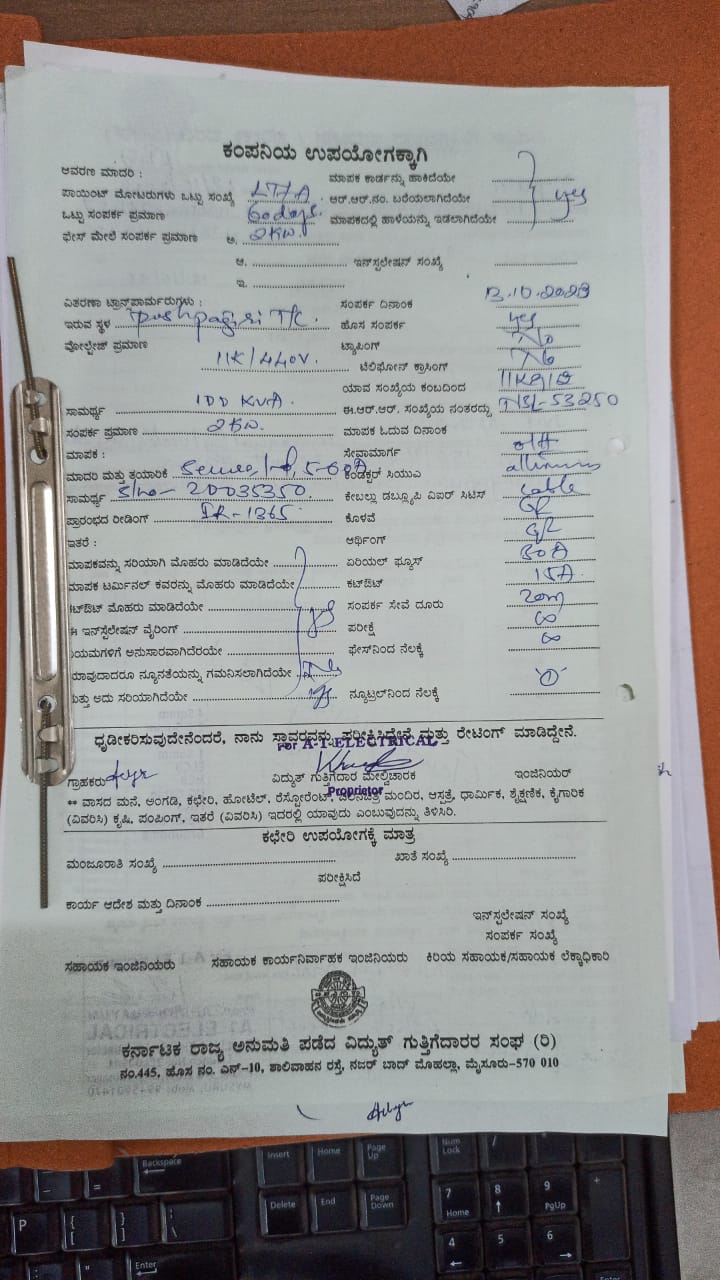 ಕಂಪನಿಯ ಉಪಯೋಗಕ್ಕಾಗಿ
ಆವರಣ ಮಾದರಿ :
ಮಾಪಕ ಕಾರ್ಡನ್ನು ಹಾಕಿದೆಯೇ
ಪಾಯಿಂಟ್ ಮೋಟರುಗಳು ಒಟ್ಟು ಸಂಖ್ಯೆ ಆರ್.ಆರ್.ನಂ. ಬರೆಯಲಾಗಿದೆಯೇ yes
ಒಟ್ಟು ಸಂಪರ್ಕ ಪ್ರಮಾಣ 60 days. ಮಾಪಕದಲ್ಲಿ ಹಾಳೆಯನ್ನು ಇಡಲಾಗಿದೆಯೇ
ಫೇಸ್ ಮೇಲೆ ಸಂಪರ್ಕ ಪ್ರಮಾಣ ಅ. 2KW.
ಆ. ಇನ್‌ಸ್ಟಲೇಷನ್ ಸಂಖ್ಯೆ
ಇ.
ವಿತರಣಾ ಟ್ರಾನ್ಸ್‌ಪಾರ್ಮರುಗಳು : ಸಂಪರ್ಕ ದಿನಾಂಕ 13.10.2023
ಇರುವ ಸ್ಥಳ pushpagiri T/C. ಹೊಸ ಸಂಪರ್ಕ yes
ವೋಲ್ಟೇಜ್ ಪ್ರಮಾಣ ಟ್ಯಾಪಿಂಗ್ No
11K/440V. ಟೆಲಿಫೋನ್ ಕ್ರಾಸಿಂಗ್ No
ಯಾವ ಸಂಖ್ಯೆಯ ಕಂಬದಿಂದ
ಸಾಮರ್ಥ್ಯ 100 KVA. ಈ.ಆರ್.ಆರ್. ಸಂಖ್ಯೆಯ ನಂತರದ್ದು NBL-53250
ಸಂಪರ್ಕ ಪ್ರಮಾಣ 2KW. ಮಾಪಕ ಓದುವ ದಿನಾಂಕ
ಮಾಪಕ : ಸೇವಾಮಾರ್ಗ O/H
ಮಾದರಿ ಮತ್ತು ತಯಾರಿಕೆ 5-60A ಕಂಡಕ್ಟರ್ ಸಿಯುಎ
ಸಾಮರ್ಥ್ಯ S/no- 20035350. ಕೇಬಲ್ಲು ಡಬ್ಲ್ಯೂಪಿ ವಿಐರ್ ಸಿಟಿಸ್ cable
ಪ್ರಾರಂಭದ ರೀಡಿಂಗ್ IR-1365 ಕೊಳವೆ
ಇತರೆ : ಆರ್ಥಿಂಗ್
ಮಾಪಕವನ್ನು ಸರಿಯಾಗಿ ಮೊಹರು ಮಾಡಿದೆಯೇ ಏರಿಯಲ್ ಫ್ಯೂಸ್ 30A
ಮಾಪಕ ಟರ್ಮಿನಲ್ ಕವರನ್ನು ಮೊಹರು ಮಾಡಿದೆಯೇ ಕಟ್‌ಔಟ್ 15A.
ಟ್‌ಔಟ್ ಮೊಹರು ಮಾಡಿದೆಯೇ yes ಸಂಪರ್ಕ ಸೇವೆ ದೂರು 20m
ಈ ಇನ್‌ಸ್ಟಲೇಷನ್ ವೈರಿಂಗ್ ಪರೀಕ್ಷೆ ∞
ಯಮಗಳಿಗೆ ಅನುಸಾರವಾಗಿದೆಯೇ ಫೇಸ್‌ನಿಂದ ನೆಲಕ್ಕೆ ∞
ಯಾವುದಾದರೂ ನ್ಯೂನತೆಯನ್ನು ಗಮನಿಸಲಾಗಿದೆಯೇ No
ಮತ್ತು ಅದು ಸರಿಯಾಗಿದೆಯೇ yes ನ್ಯೂಟ್ರಲ್‌ನಿಂದ ನೆಲಕ್ಕೆ '0'
ಧೃಡೀಕರಿಸುವುದೇನೆಂದರೆ, ನಾನು ಸ್ಥಾವರವನ್ನು ಪರೀಕ್ಷಿಸಿದ್ದೇನೆ ಮತ್ತು ರೇಟಿಂಗ್ ಮಾಡಿದ್ದೇನೆ.
For A-1-ELECTRICAL
ಗ್ರಾಹಕರು ವಿದ್ಯುತ್ ಗುತ್ತಿಗೆದಾರ ಮೇಲ್ವಿಚಾರಕ ಇಂಜಿನಿಯರ್
Proprietor
** ವಾಸದ ಮನೆ, ಅಂಗಡಿ, ಕಛೇರಿ, ಹೋಟೆಲ್, ರೆಸ್ಟೋರೆಂಟ್, ಚಲನಚಿತ್ರ ಮಂದಿರ, ಆಸ್ಪತ್ರೆ, ಧಾರ್ಮಿಕ, ಶೈಕ್ಷಣಿಕ, ಕೈಗಾರಿಕ
(ವಿವರಿಸಿ) ಕೃಷಿ, ಪಂಪಿಂಗ್, ಇತರೆ (ವಿವರಿಸಿ) ಇದರಲ್ಲಿ ಯಾವುದು ಎಂಬುವುದನ್ನು ತಿಳಿಸಿರಿ.
ಕಛೇರಿ ಉಪಯೋಗಕ್ಕೆ ಮಾತ್ರ
ಮಂಜೂರಾತಿ ಸಂಖ್ಯೆ ಖಾತೆ ಸಂಖ್ಯೆ
ಪರೀಕ್ಷಿಸಿದೆ
ಕಾರ್ಯ ಆದೇಶ ಮತ್ತು ದಿನಾಂಕ
ಇನ್‌ಸ್ಟಲೇಷನ್ ಸಂಖ್ಯೆ
ಸಂಪರ್ಕ ಸಂಖ್ಯೆ
ಸಹಾಯಕ ಇಂಜಿನಿಯರು ಸಹಾಯಕ ಕಾರ್ಯನಿರ್ವಾಹಕ ಇಂಜಿನಿಯರು ಕಿರಿಯ ಸಹಾಯಕ/ಸಹಾಯಕ ಲೆಕ್ಕಾಧಿಕಾರಿ
ಕರ್ನಾಟಕ ರಾಜ್ಯ ಅನುಮತಿ ಪಡೆದ ವಿದ್ಯುತ್ ಗುತ್ತಿಗೆದಾರರ ಸಂಘ (ರಿ)
ನಂ.445, ಹೊಸ ನಂ. ಎನ್-10, ಶಾಲಿವಾಹನ ರಸ್ತೆ, ನಜರ್ ಬಾದ್ ಮೊಹಲ್ಲಾ, ಮೈಸೂರು-570 010
Backspace Insert Home Page Up Num Lock /
Delete End Page Down 7 Home 8 9 PgUp
P { [ } ] 4 5 6
Enter